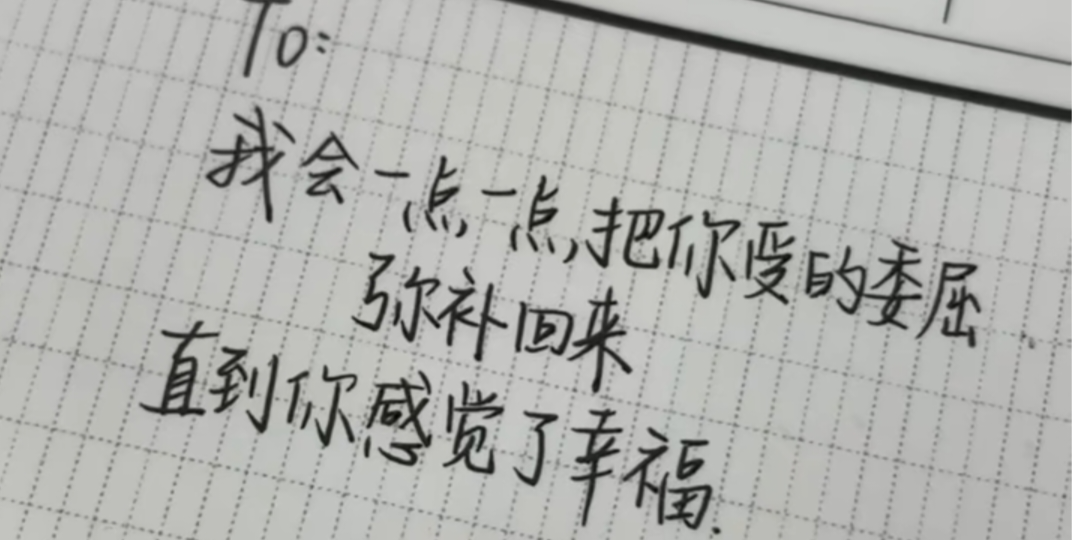 To:
我会一点一点把你受的委屈
弥补回来
直到你感觉了幸福.